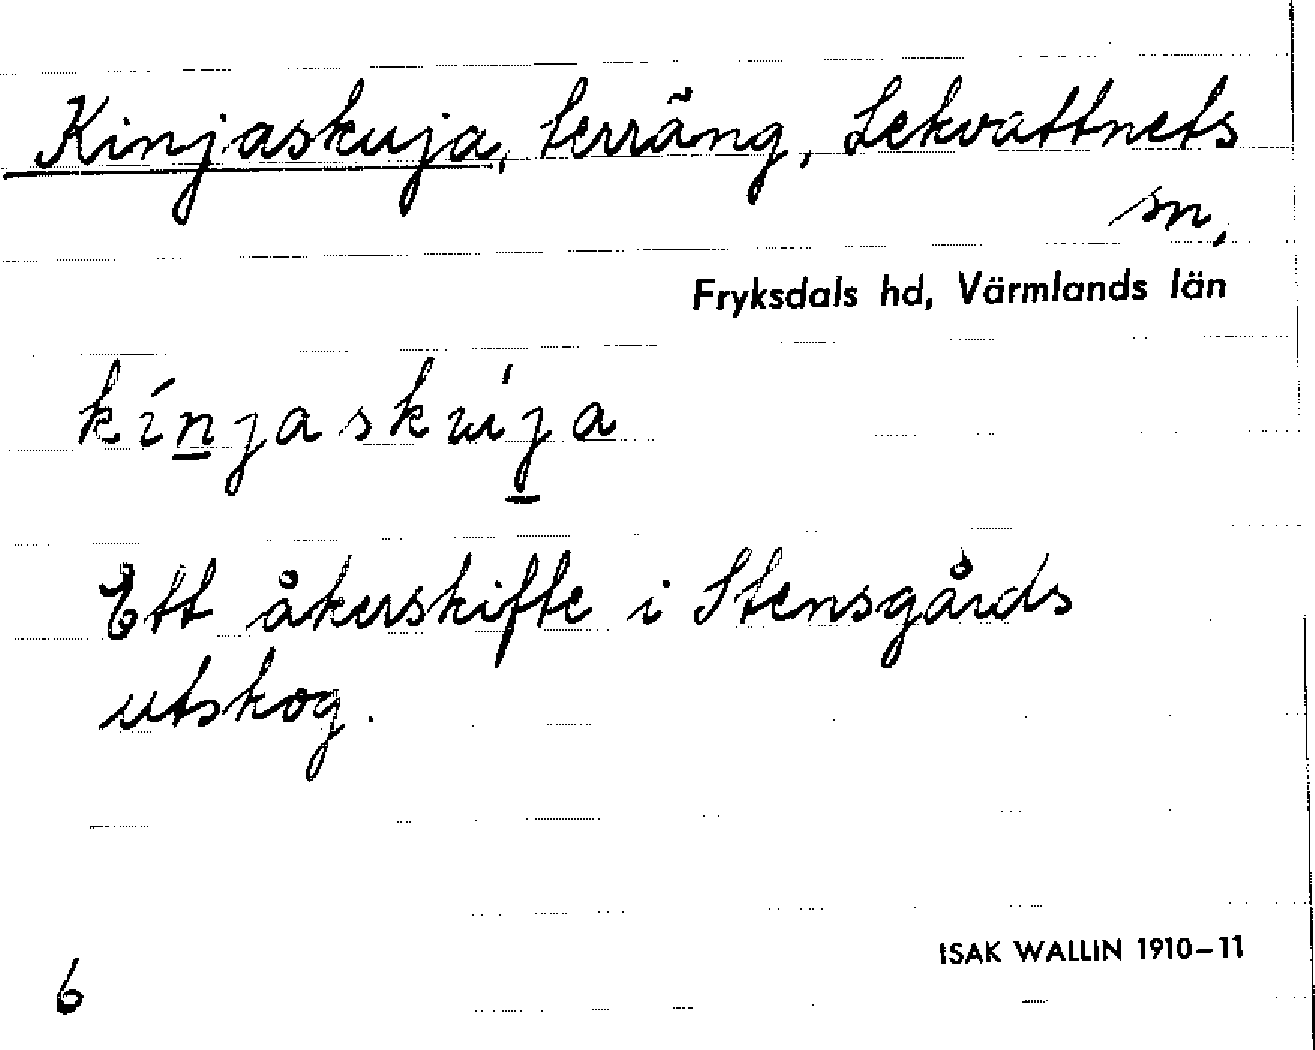 Kinjaskuja, terräng, Lekvattnets
sn,
Fryksdals hd, Värmlands län
kínjaskuíja
Ett åkerskifte i Stensgårds
utskog.
ISAK WALLIN 1910–11
6